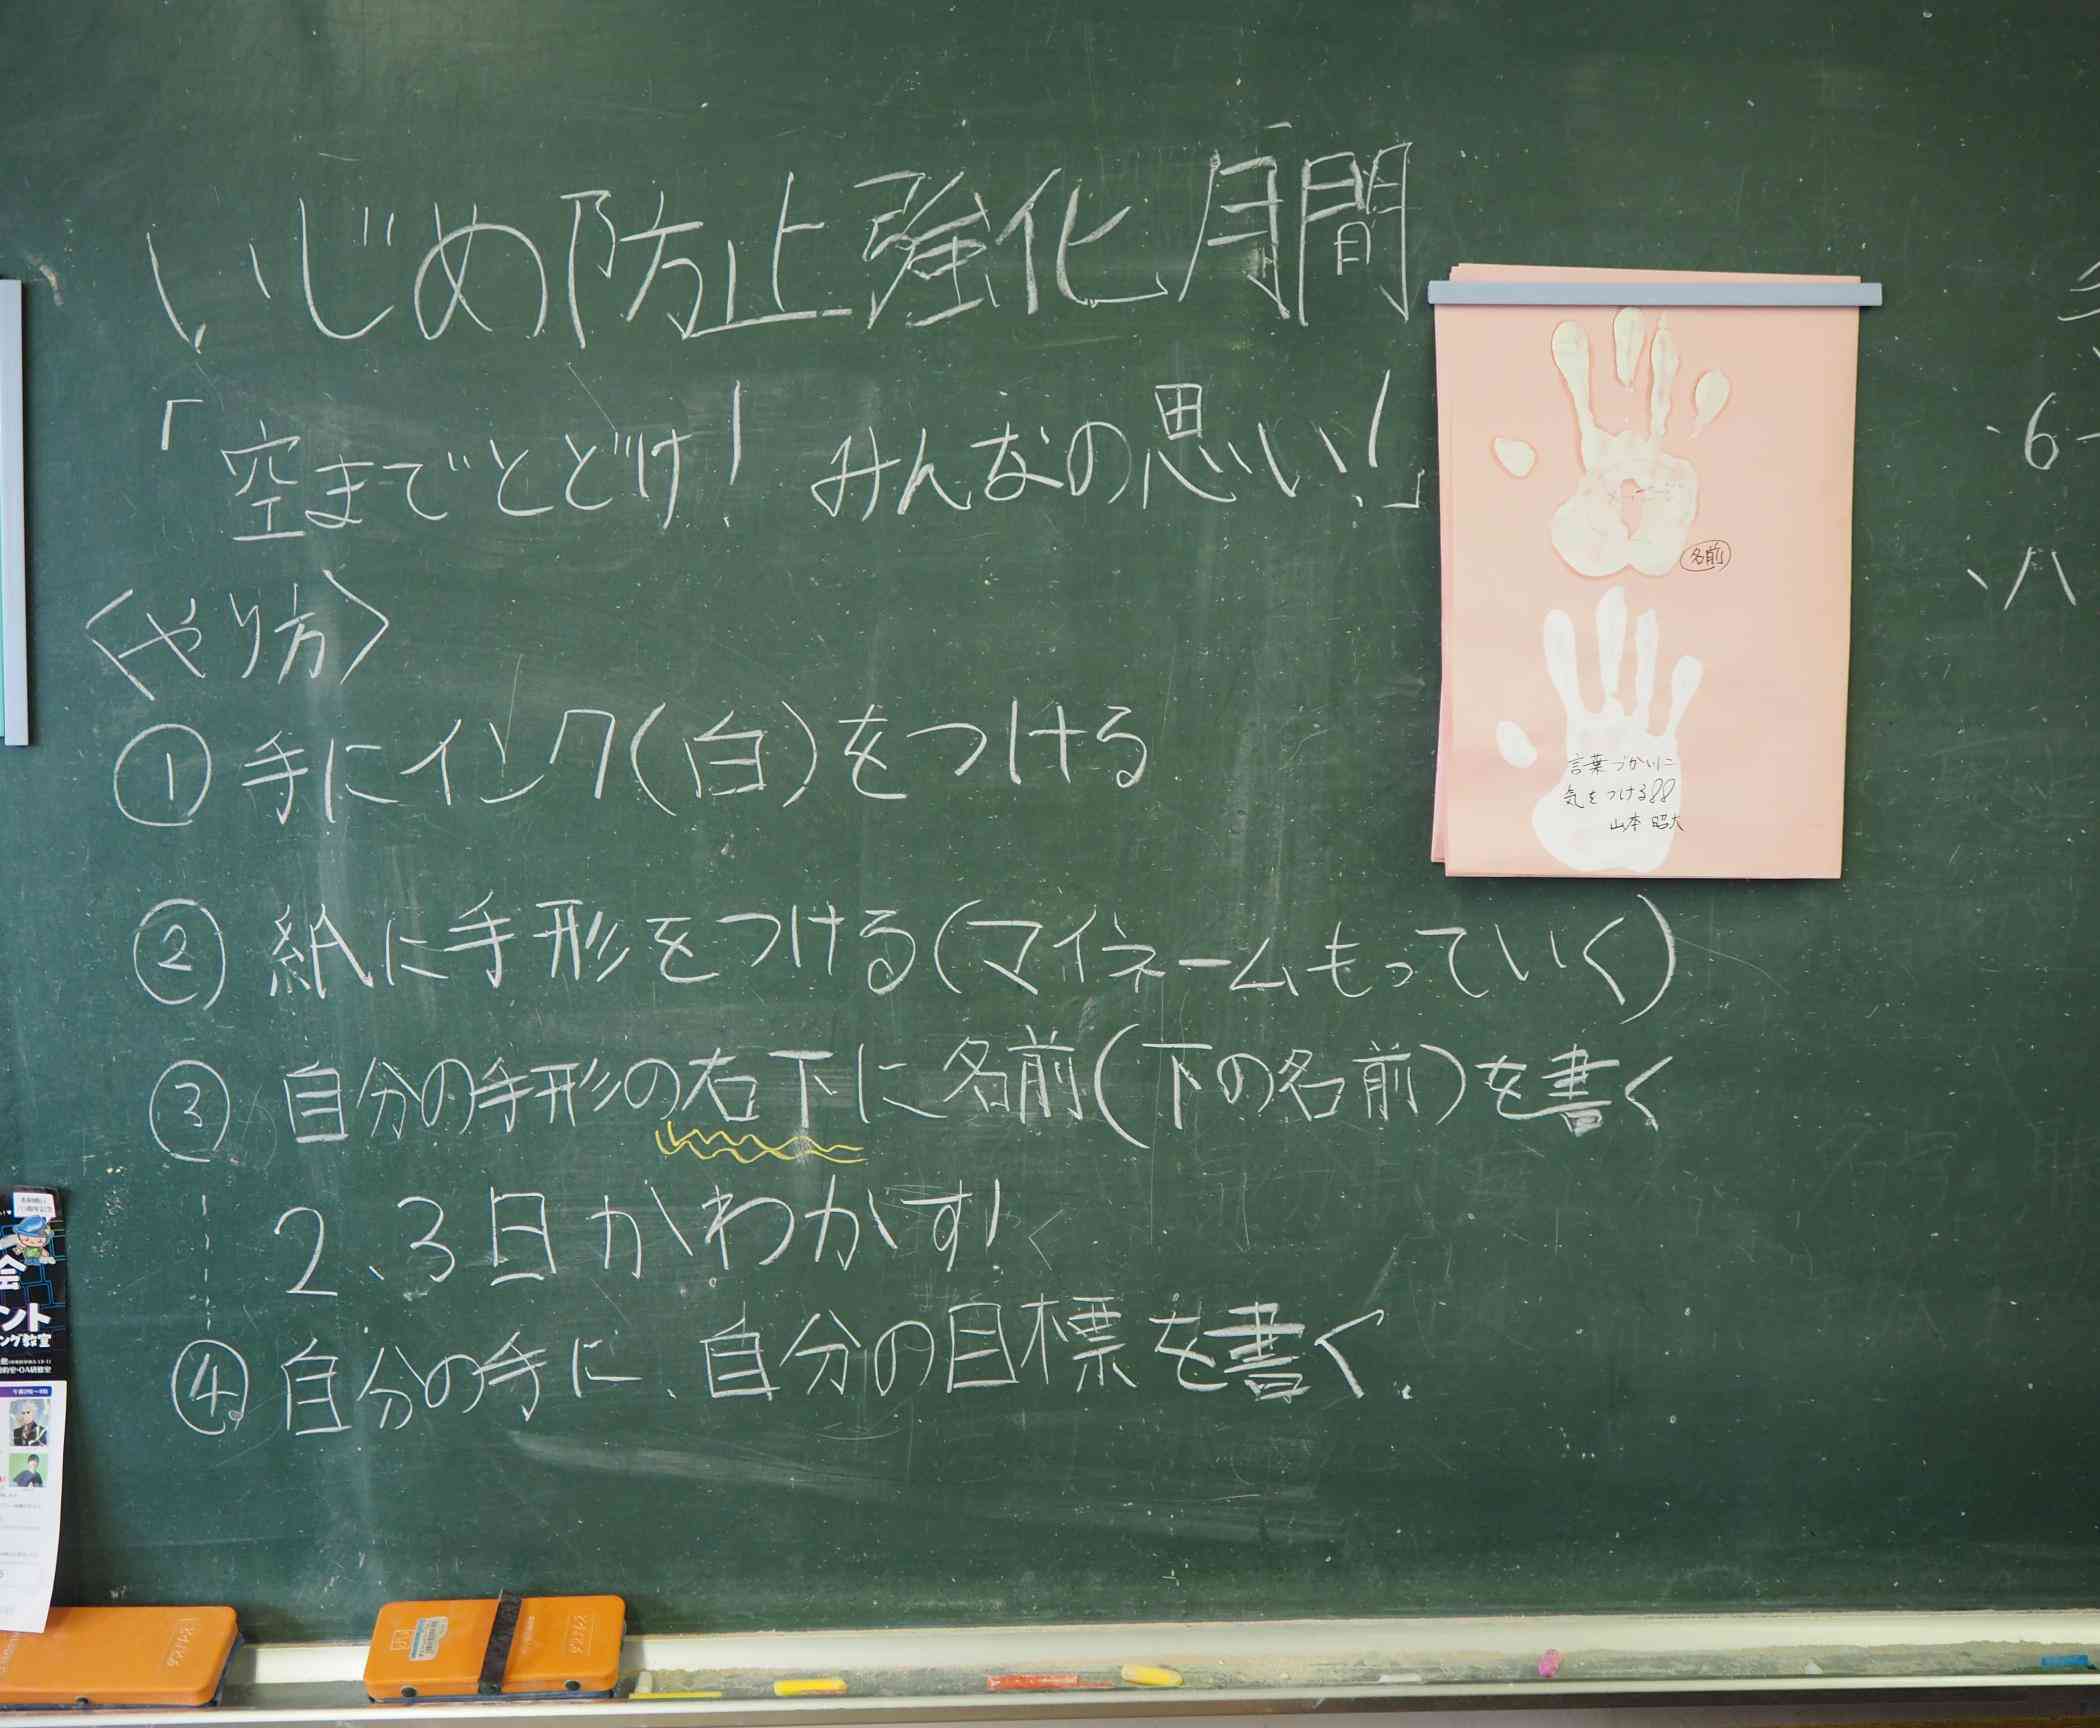 いじめ防止強化月間
「空までとどけ！みんなの思い！」
〈やり方〉
① 手にインク(白)をつける
② 紙に手形をつける(マイネームもっていく)
③ 自分の手形の右下に名前(下の名前)を書く
2、3日かわかす！
④ 自分の手に、自分の目標を書く。
名前
言葉づかいに
気をつける!!
山本 昭大
6
八
会
ント
ング教室